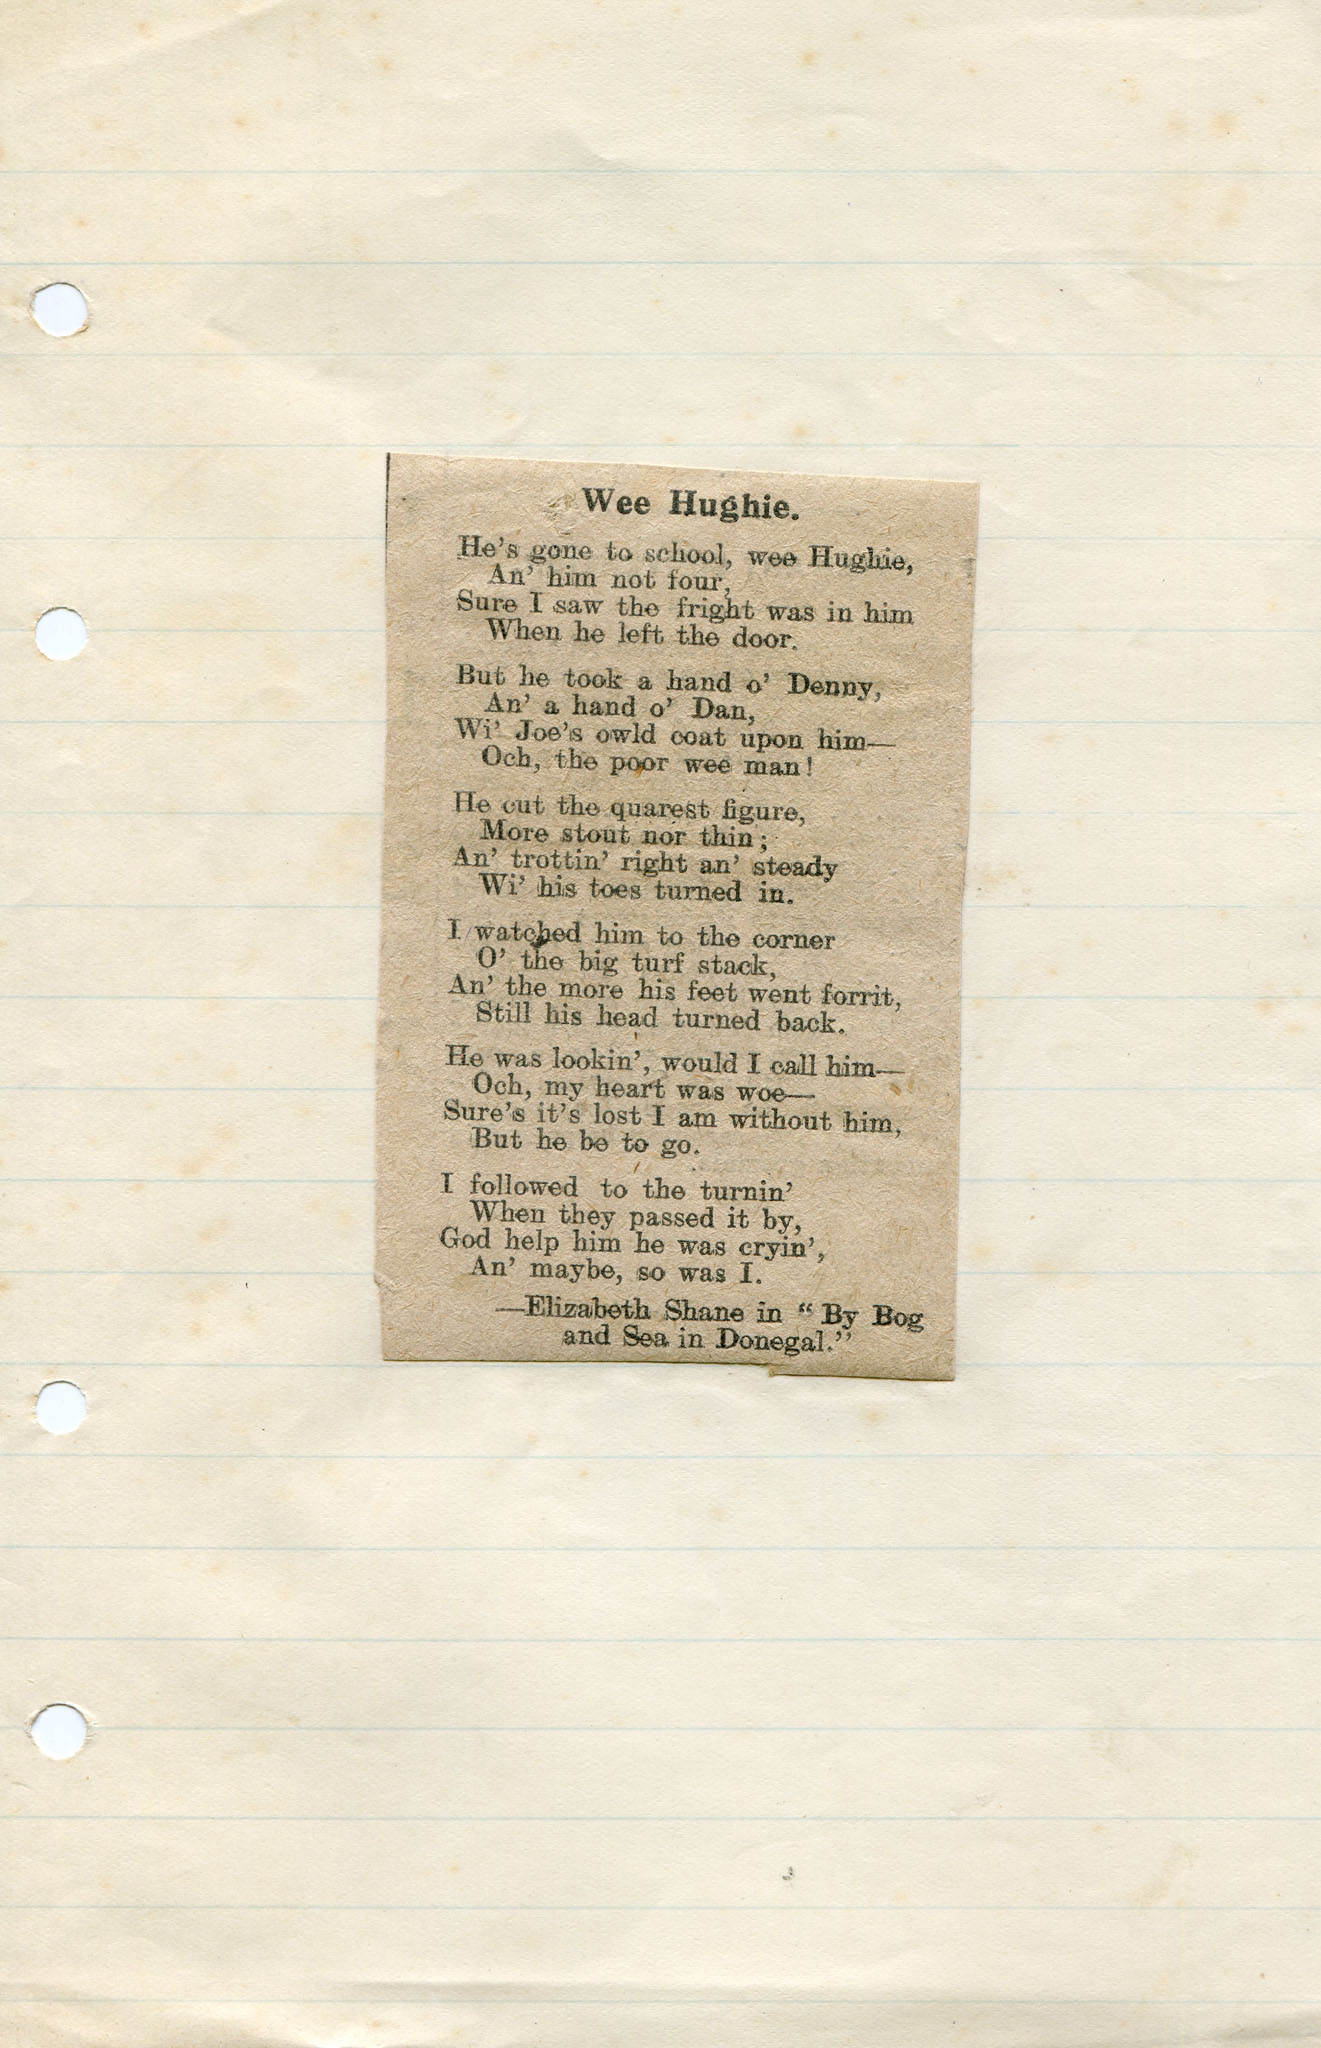 Wee Hughie.
He's gone to school, wee Hughie,
An' him not four,
Sure I saw the fright was in him
When he left the door.
But he took a hand o' Denny,
An' a hand o' Dan,
Wi' Joe's owld coat upon him—
Och, the poor wee man!
He cut the quarest figure,
More stout nor thin;
An' trottin' right an' steady
Wi' his toes turned in.
I watched him to the corner
O' the big turf stack,
An' the more his feet went forrit,
Still his head turned back.
He was lookin', would I call him—
Och, my heart was woe—
Sure's it's lost I am without him,
But he be to go.
I followed to the turnin'
When they passed it by,
God help him he was cryin',
An' maybe, so was I.
—Elizabeth Shane in "By Bog
and Sea in Donegal."